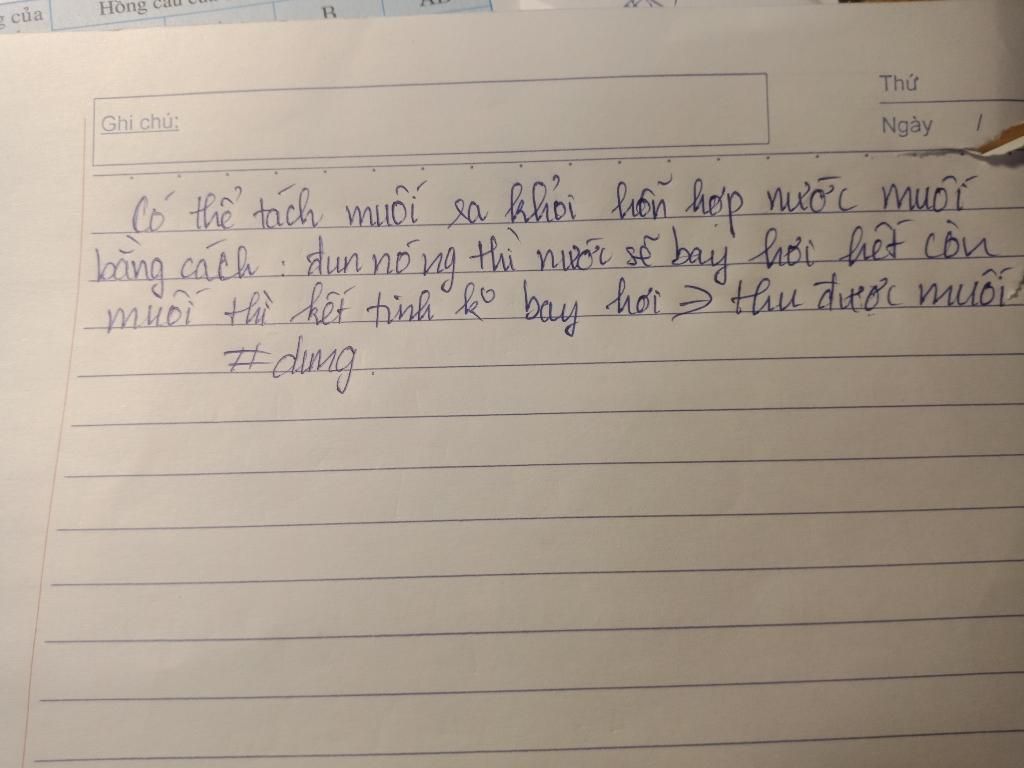 g của
Hồng cầu của
B
AB
Thứ
Ghi chú:
Ngày /
Có thể tách muối ra khỏi hỗn hợp nước muối
bằng cách : đun nóng thì nước sẽ bay hơi hết còn
muối thì kết tinh ko bay hơi => thu được muối
#dung.